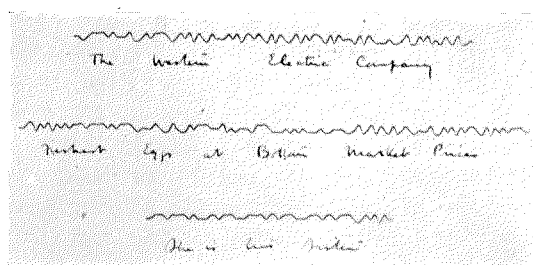 The Western Electric Company
Eggs at Bottom Market Prices
She is his Sister